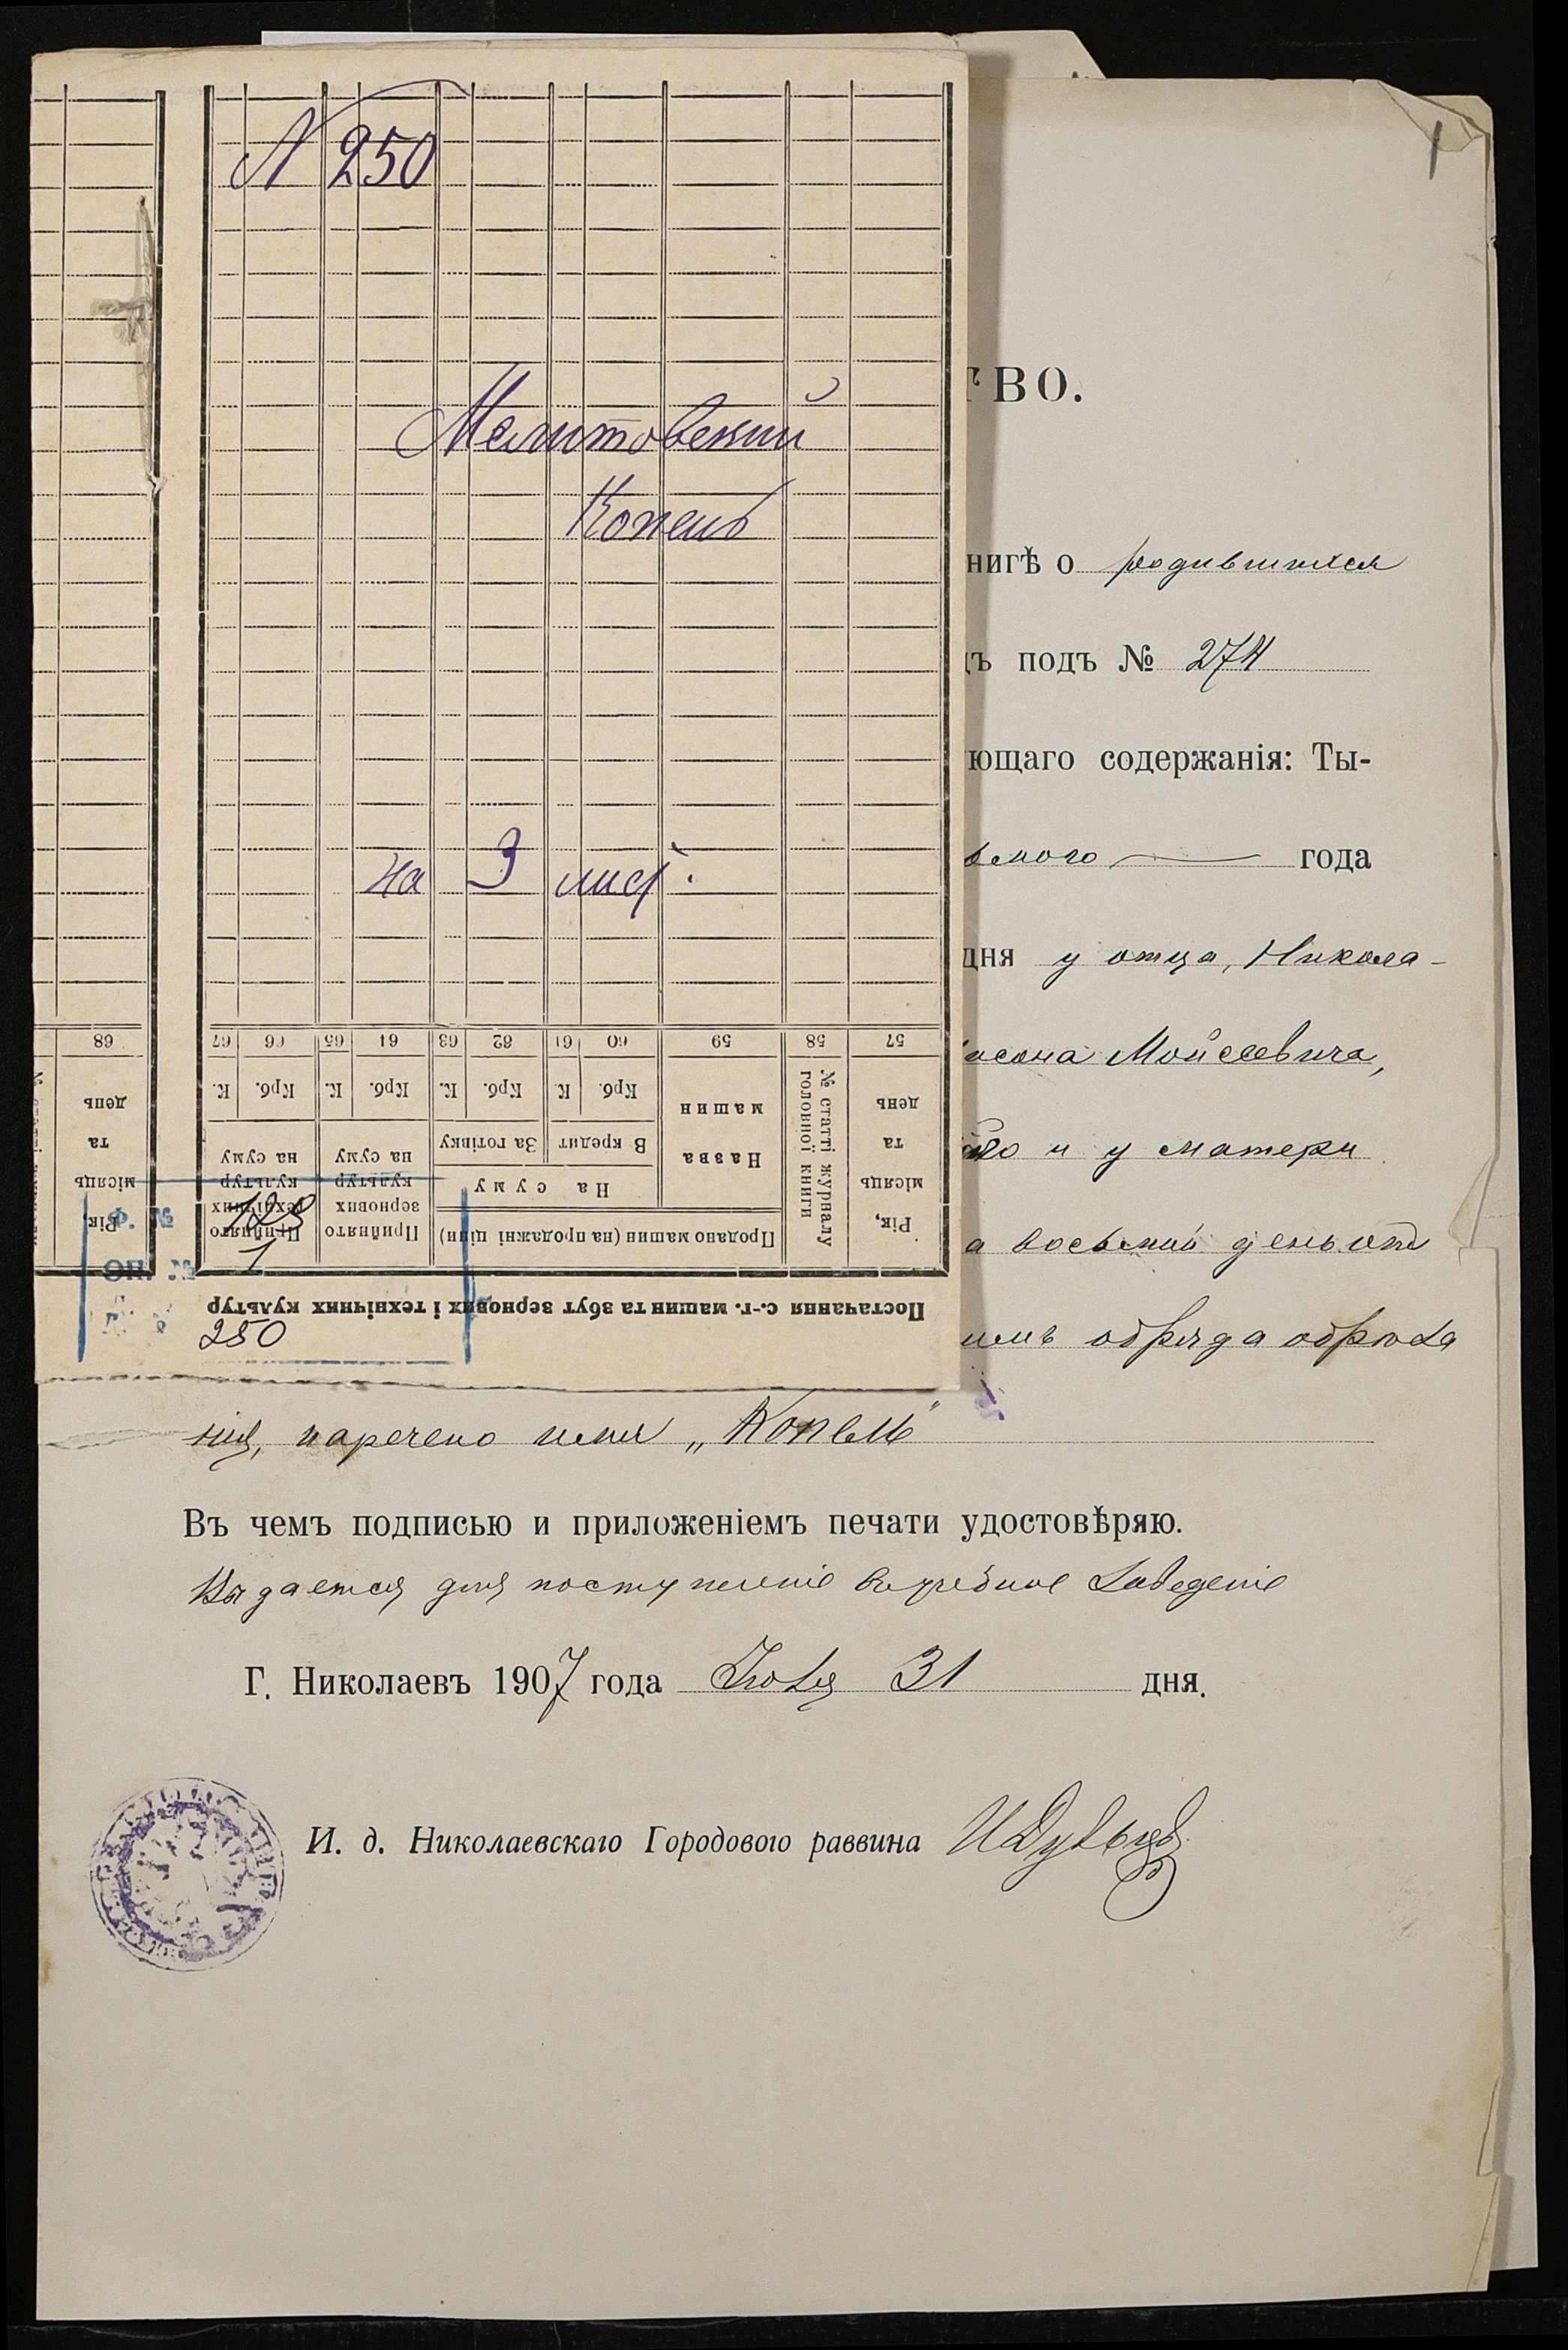 N 250
Мелитовский
Копель
на 3 лист.
68
67
66
65
64
63
62
61
60
59
58
57
К.
Крб.
К.
Крб.
К.
Крб.
К.
Крб.
Назва машин
№ статті журналу головної книги
Рік, місяць та день
Рік, місяць та день
За готівку
В кредит
На суму
Продано машин (на продажні ціни)
Прийнято зернових культур на суму
Прийнято технічних культур на суму
Постачання с.-г. машин та збут зернових і технічних культур
Ф. №
123
1
ОП. №
250
1
ТВО.
ниге о родившихся
ъ подъ № 274
ющаго содержанія: Ты-
ьмого года
дня у отца, Никола-
Мойсеевича,
и у матери
а восьмый день отъ
обряда обрѣза
нія, наречено имя „Копель"
Въ чемъ подписью и приложеніемъ печати удостовѣряю.
Выдается для поступленія въ учебное заведеніе
Г. Николаевъ 1907 года Іюля 31 дня.
И. д. Николаевскаго Городового раввина